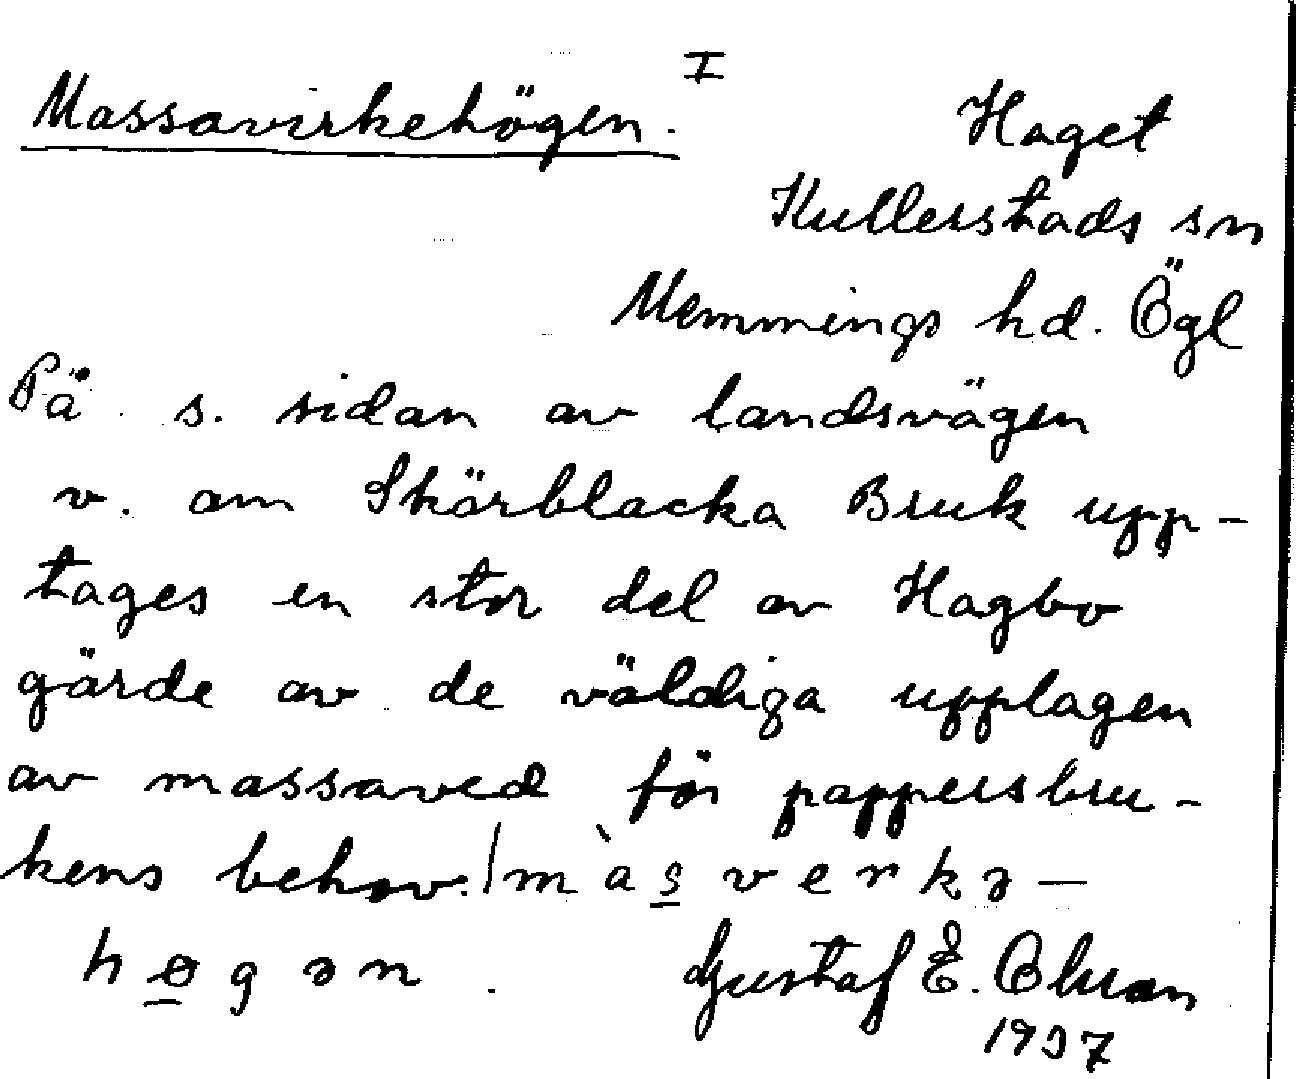 I
Massavirkehögen.
Haget
Kullerstads sn
Memmings hd. Ögl
På s. sidan av landsvägen
v. om Skärblacka Bruk upp-
tages en stor del av Hagbo
gärde av de väldiga upplagen
av massaved för pappersbru-
kens behov. | m à s̲ v e r k ə —
h ø̲ g ə n . Gustaf E. Olson
1937